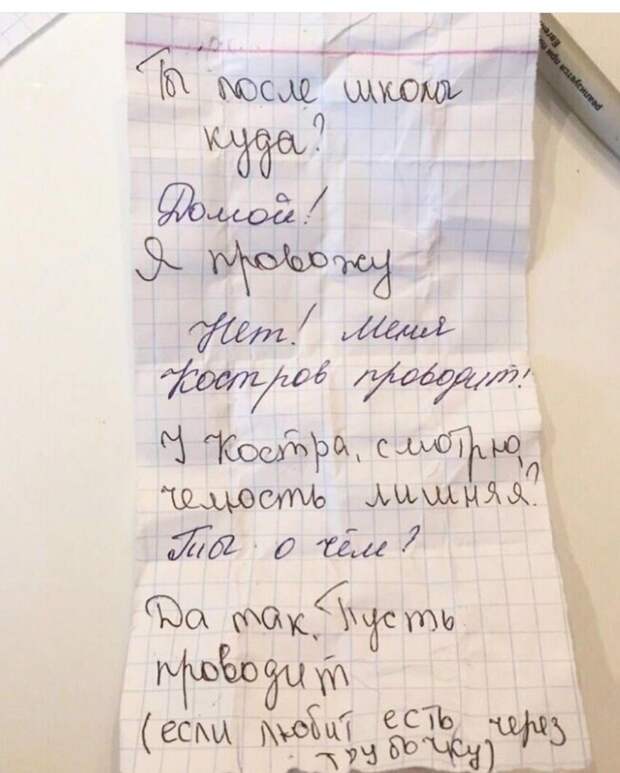 Ты после школы
куда?
Домой!
Я провожу
Нет! Меня
Костров проводит!
У Костра, смотрю,
челюсть лишняя?
Ты о чём?
Да так, Пусть
проводит
(если любит есть через
трубочку)
реализуется при